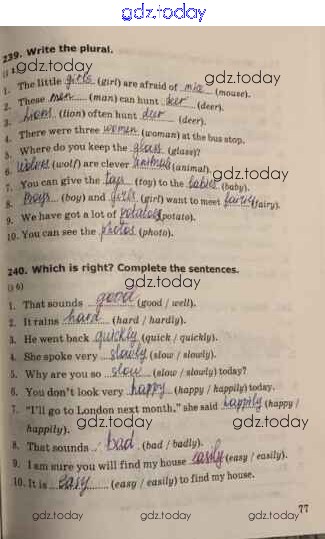 gdz.today
239. Write the plural.
1. The little girls (girl) are afraid of mice (mouse).
2. These men (man) can hunt deer (deer).
3. Lions (lion) often hunt deer (deer).
4. There were three women (woman) at the bus stop.
5. Where do you keep the glass (glass)?
6. wolves (wolf) are clever animals (animal).
7. You can give the toys (toy) to the babies (baby).
8. Boys (boy) and girls (girl) want to meet (fairy).
9. We have got a lot of potatoes (potato).
10. You can see the photos (photo).
240. Which is right? Complete the sentences.
(§ 6)
1. That sounds good (good / well).
2. It rains hard (hard / hardly).
3. He went back quickly (quick / quickly).
4. She spoke very slowly (slow / slowly).
5. Why are you so slow (slow / slowly) today?
6. You don't look very happy (happy / happily) today.
7. "I'll go to London next month," she said happily (happy /
happily).
8. That sounds bad (bad / badly).
9. I am sure you will find my house easily (easy / easily).
10. It is easy (easy / easily) to find my house.
77
gdz.today
gdz.today
gdz.today
gdz.today
gdz.today
gdz.today
gdz.today
gdz.today
gdz.today
gdz.today
gdz.today
gdz.today